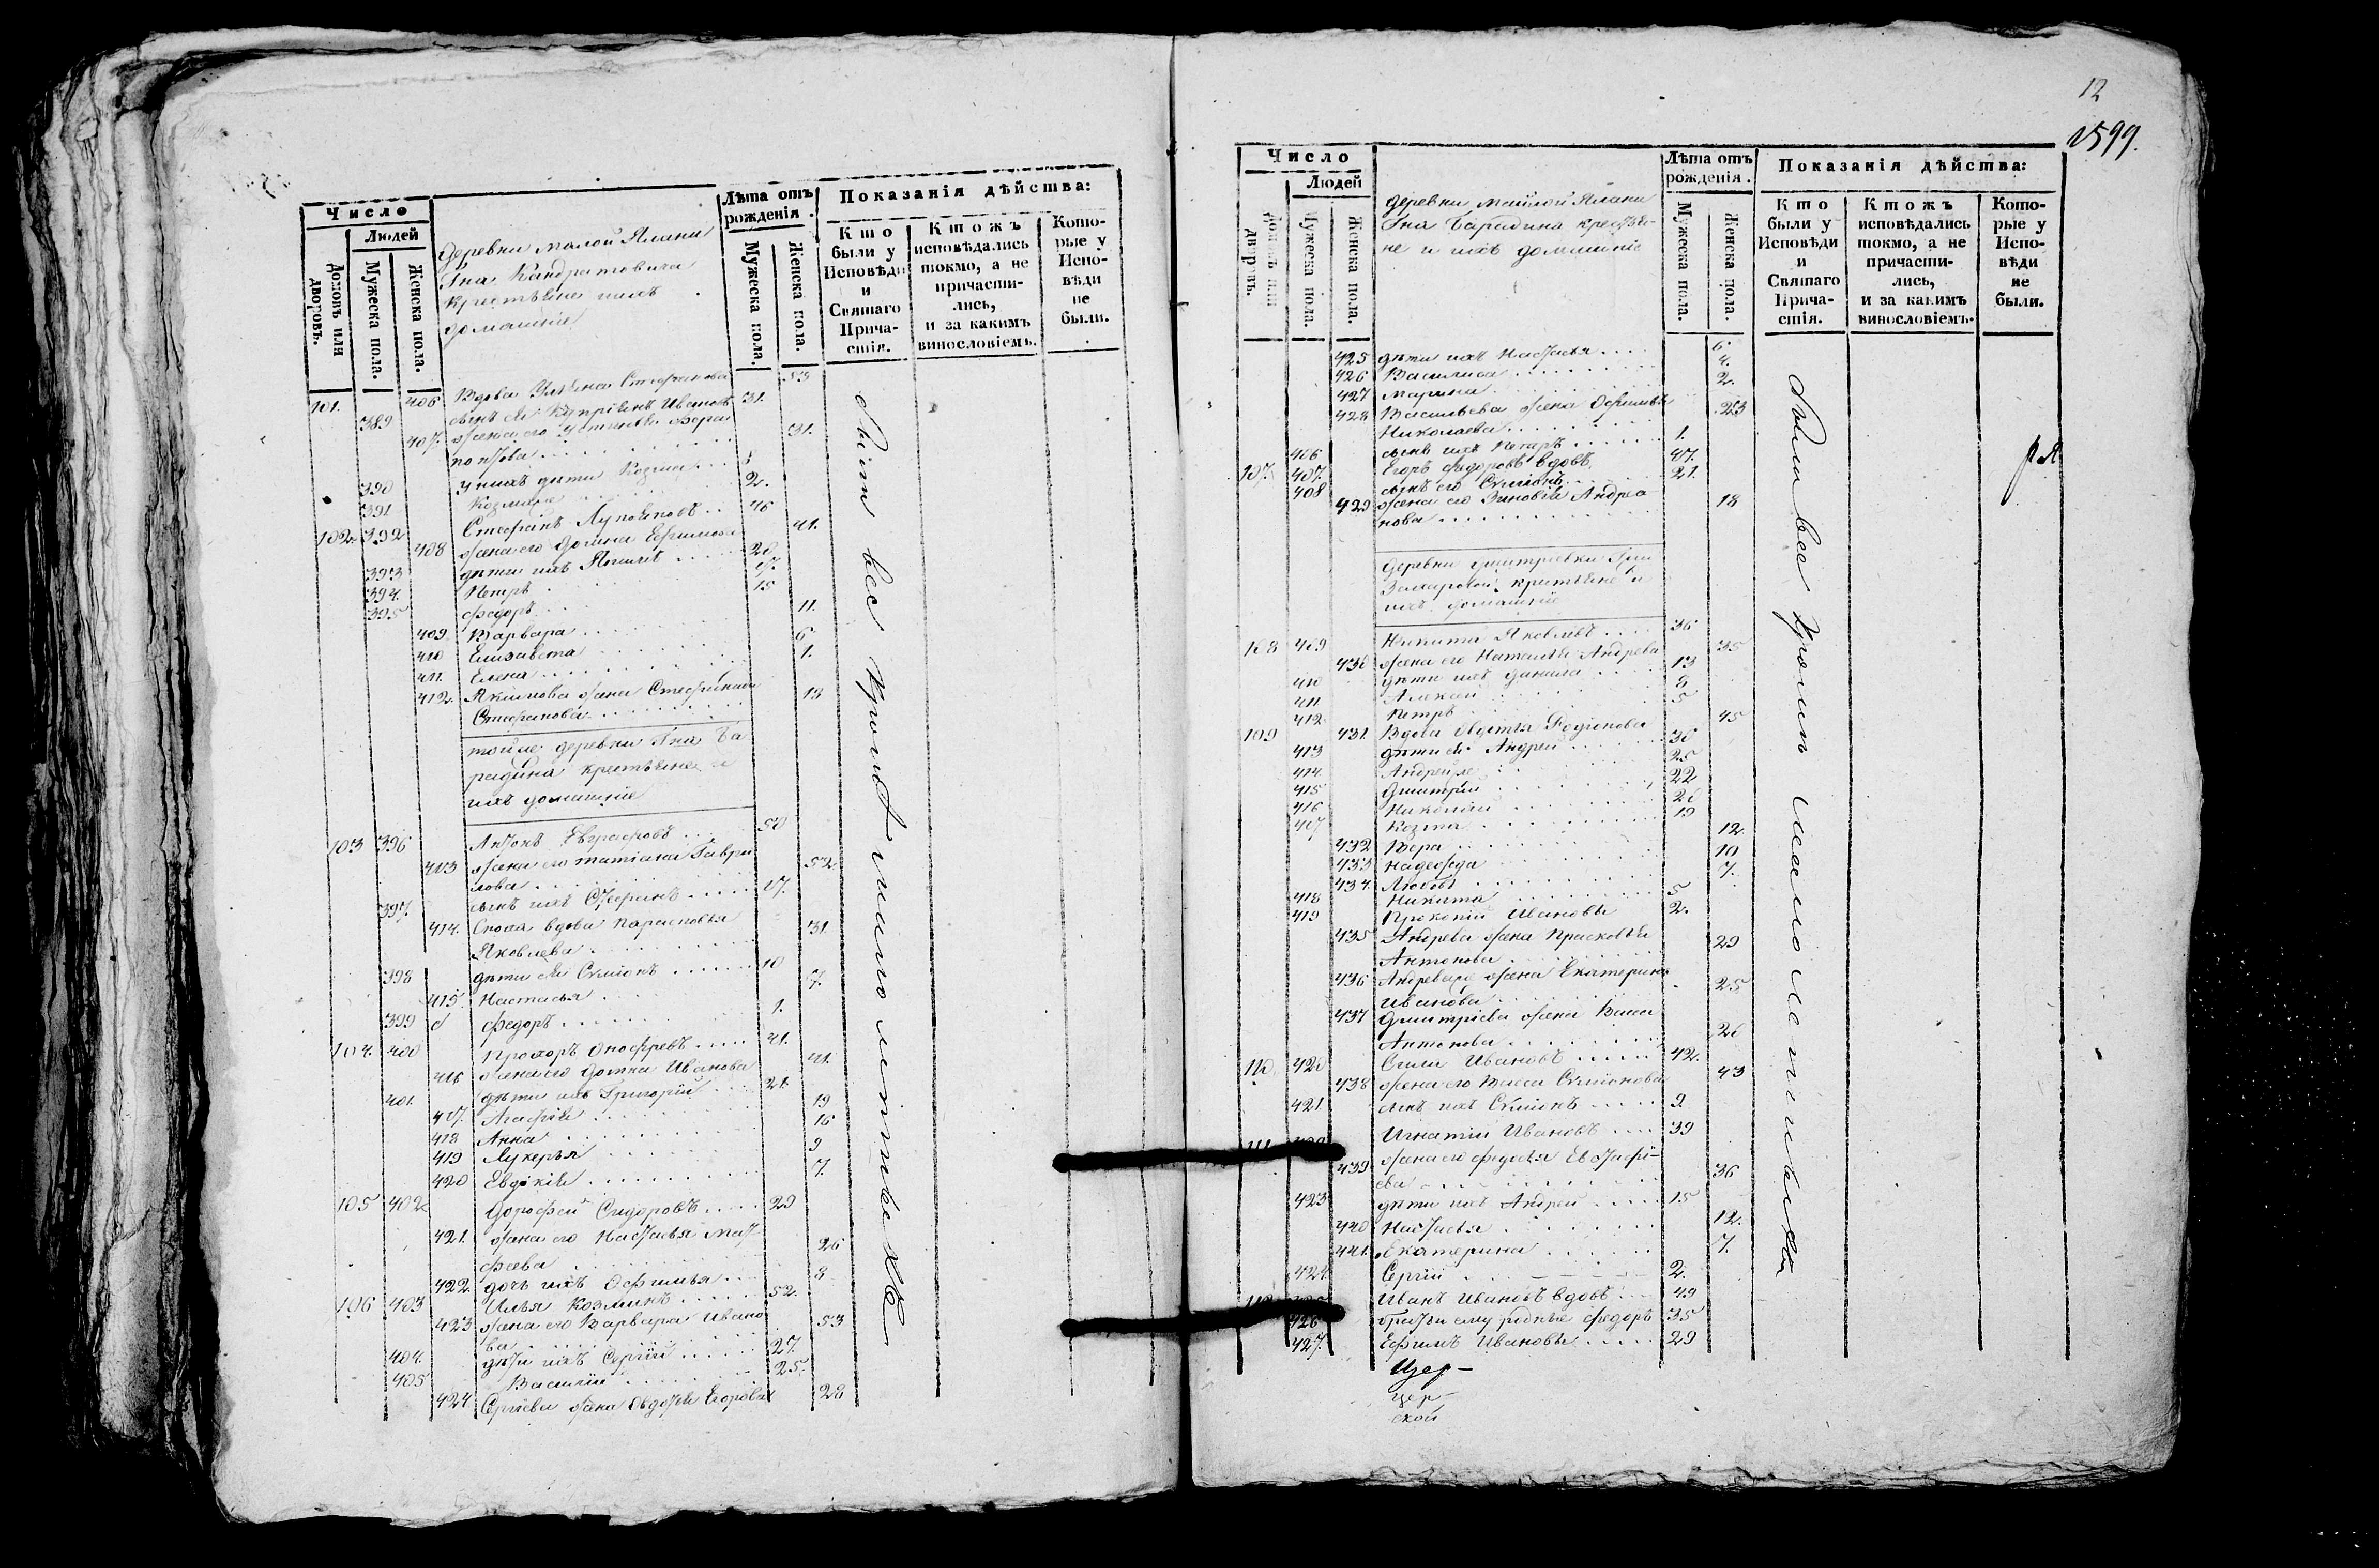 Число
Людей
Домовъ или дворовъ.
Мужеска пола.
Женска пола.
деревни малой Ялани
Гна Кандратовича
крестьяне ихъ
домашніе
Лѣта отъ рожденія.
Мужеска пола.
Женска пола.
Показанія дѣйства:
Кто были у Исповѣди и Святаго Причастія.
Ктожъ исповѣдались токмо, а не причастились, и за какимъ винословіемъ.
Которые у Исповѣди не были.
101. 406 Вдова Ульяна Стефанова 53
389 сынъ ея Купріянъ Ивановъ 31.
407. жена его Устинья Фера
понтова 31.
390 у нихъ дѣти Козма 8
391 Козмаже 2.
102. 392 Стефанъ Лупояновъ 46
408 жена его Домна Ефимова 41.
393 дѣти ихъ Якимъ 20
394. Петръ 17.
395 Федоръ 15
409. Варвара 11.
410 Елизавета 6.
411. Елена 1.
412. Якимова жена Стефанида
Стефанова 18
тойже деревни Гна Ба
радина крестьяне и
ихъ домашніе
103 396 Антонъ Евграфовъ 50
413 жена его татіана Гаври
лова 52
397. сынъ ихъ Стефанъ 17.
414. Сноха вдова Парасковья
Яковлева 31
398 дѣти ея Сѵміонъ 10
415. Настасья 7.
399 Федоръ 1.
104. 400 Прохоръ Онофревъ 41.
416 жена его Домна Иванова 41.
401. дѣти ихъ Григорій 21.
417. Агафія 19
418 Анна 16
419 Лукерья 9
420 Евдокія 7.
105 402 Дорофей Сидоровъ 29
421. жена его Настасья Мат
фѣева 26
422. дочь ихъ Офимья 8
106 403 Илья Козминъ 52.
423 жена его Варвара Ивано
ва 53
404. дѣти ихъ Сергій 27.
405 Василій 25.
424 Сергіева жена Овдотья Егорова 28
всѣ кромѣ малолѣтнихъ
12
1599.
Число
Людей
Домовъ или дворовъ.
Мужеска пола.
Женска пола.
деревни малой Ялани
Гна Барадина крестья-
не и ихъ домашніе
Лѣта отъ рожденія.
Мужеска пола.
Женска пола.
Показанія дѣйства:
Кто были у Исповѣди и Святаго Причастія.
Ктожъ исповѣдались токмо, а не причастились, и за какимъ винословіемъ.
Которые у Исповѣди не были.
425 дѣти ихъ Настасья 6.
426 Василиса 4.
427 Марина 2.
428 Васильева жена Офимья
Николаева 23
406 сынъ ихъ Петръ 1.
107. 407. Егоръ Федоровъ вдовъ 47.
408 сынъ его Сѵміонъ 21.
429 жена его Зиновія Андреа
нова 18
Деревни Дмитріевки Гжи
Захаровой крестьяне и
ихъ домашніе
108 409 Никита Яковлевъ 36
430 жена его Наталья Андреева 35
410 дѣти ихъ Данила 13
411 Алексѣй 8
412 Петръ 5
109 431. Вдова Овдотья Родіонова 45
413 дѣти ея Андрей 30
414. Андрейже 25
415 Дмитрій 22
416 Николай 20
417 Козма 19
432 Вера 12.
433 Надежда 10
434. Любовь 7.
418 Никита 5
419 Прокопій Ивановы 2.
435 Андрева жена Прасковья
Антонова 29
436 Андреваже жена Екатерина
Иванова 25
437 Дмитріева жена Васса
Антонова 20
110. 420 Сила Ивановъ 42.
438 жена его Васса Сѵміонова 43
421. сынъ ихъ Сѵміонъ 9
111. Игнатій Ивановъ 39
439 жена его Федосья Евстафі-
ева 36
423 дѣти ихъ Андрей 15
440 Настасья 12.
441. Екатерина 7.
424. Сергій 2.
Иванъ Ивановъ вдовъ 49
426 братья ему родные Федоръ 35
427. Ефимъ Ивановы 29
Цер-
цер-
ской
всѣ кромѣ